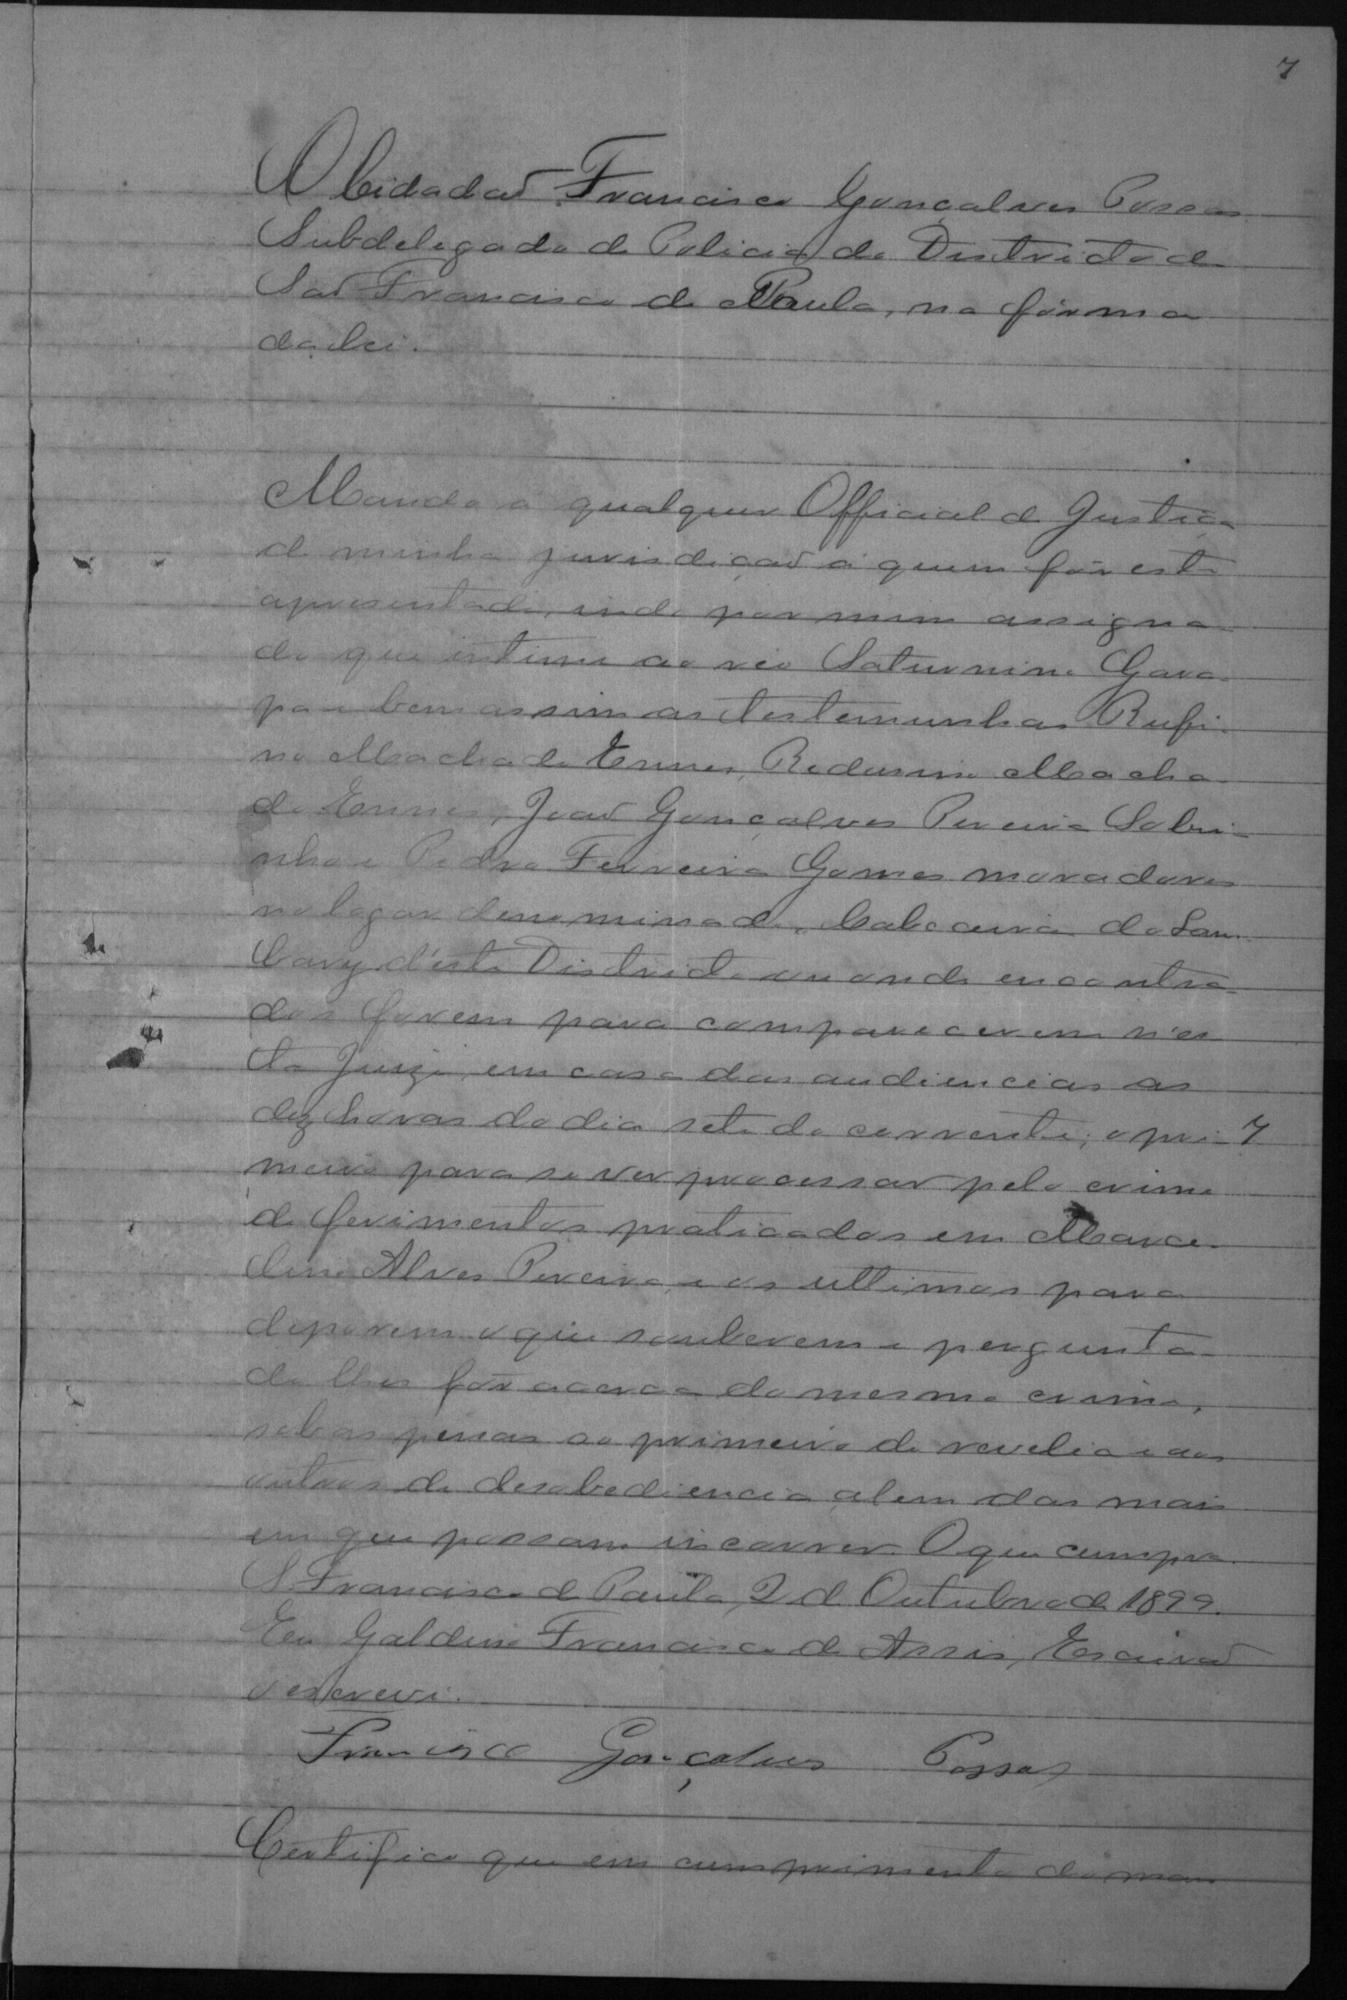 7
O Cidadaõ Francisco Gonçalves Possas
Subdelegado de Policia do Districto de
Saõ Francisco de Paula, na fórma
da lei.
Mando a qualquer Official de Justiça
de minha jurisdicçaõ a quem fôr este
apresentado, indo por mim assigna-
do que intime ao reo Saturnino
e bem assim as testemunhas Rufi-
no Machado Ennes, Redusino Macha-
do Ennes, Joaõ Gonçalves Pereira Sobri-
nho e Pedro Ferreira Gomes moradores
no logar denominado Cabeceira do
d'este Districto ou onde encontra-
dos forem para comparecerem n'es-
te Juizo, em casa das audiencias as
dez horas do dia sete do corrente; o pri- 7
meiro para se ver processar pelo crime
de ferimentos praticados em Marce-
lino Alves Pereira, e os ultimos para
deporem o que souberem e pergunta-
do lhes fôr acerca do mesmo crime,
sob as penas ao primeiro de revelia e aos
outros de desobediencia, alem das mais
em que possam incorrer. O que cumpra.
S. Francisco de Paula, 2 de Outubro de 1899.
Eu Galdino Francisco de Assis, Escrivaõ
o escrevi.
Francisco Gonçalves Possas
Certifico que em cumprimento do man-